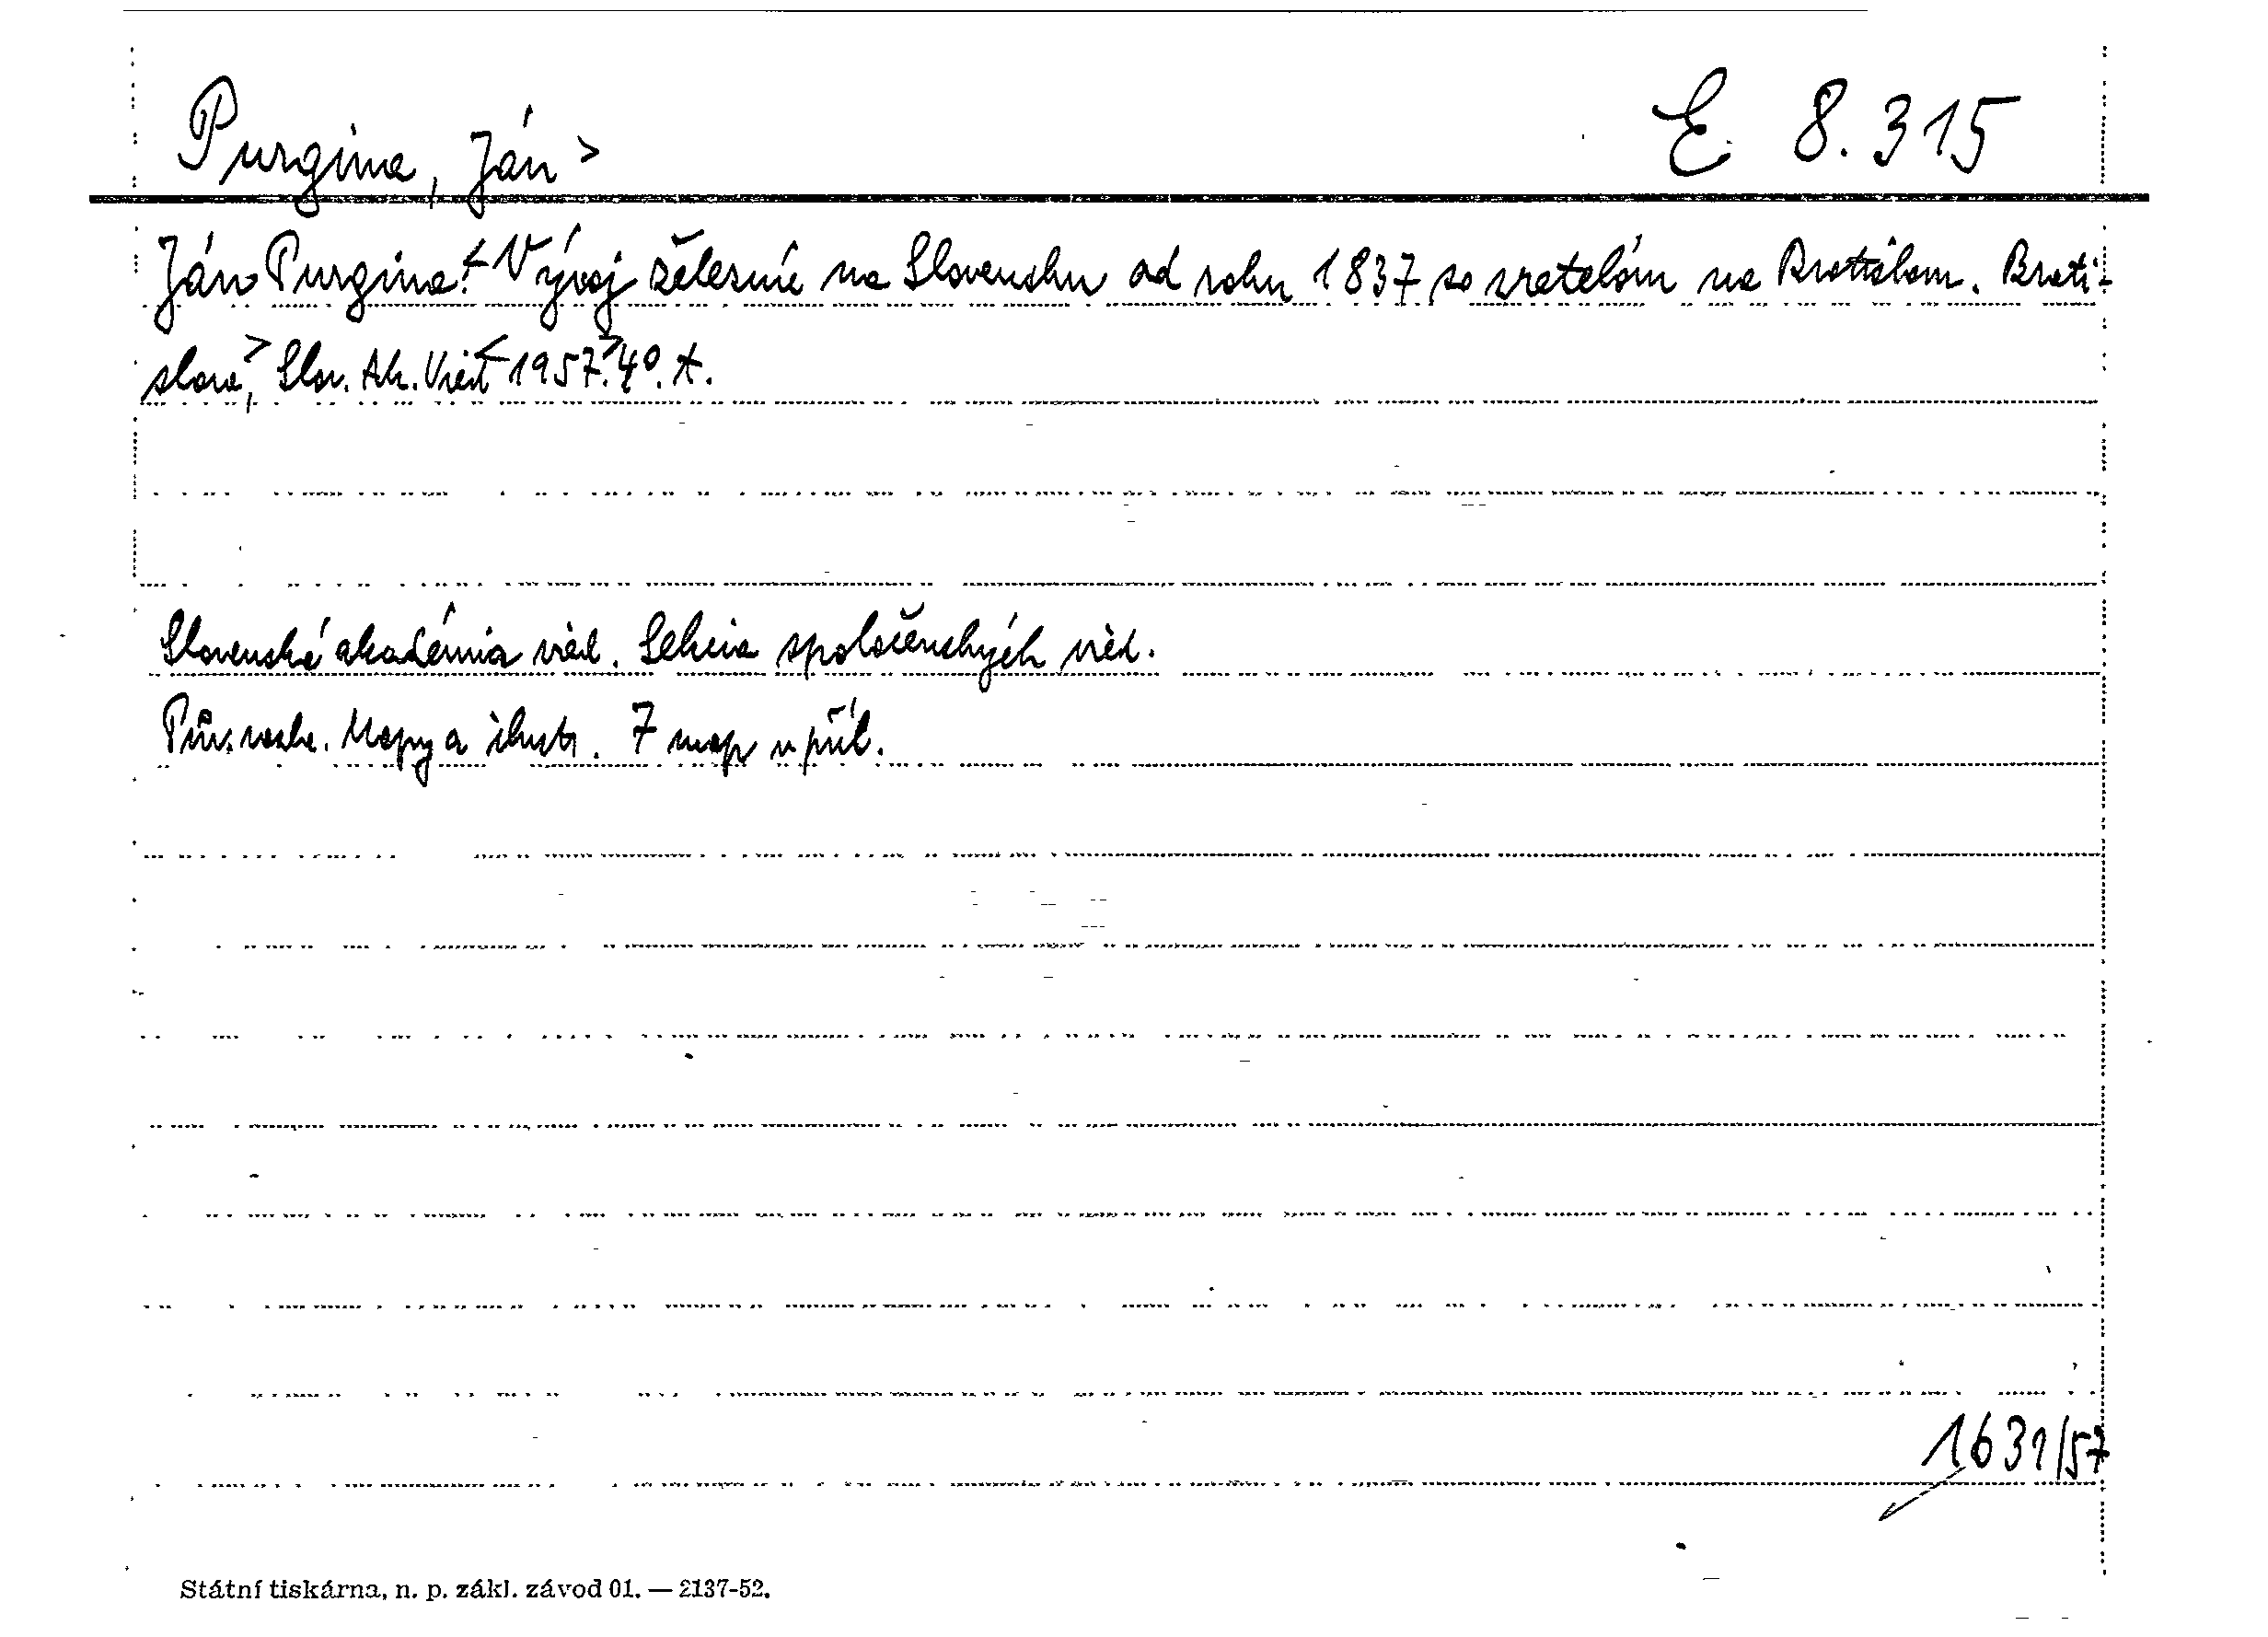 Purgina, Ján > E 8.315
Ján Purgina: < Vývoj železníc na Slovensku od roku 1837 so zreteľom na Bratislavu. Brati-
slava, > Slov. Ak. Vied < 1957. > 4°. A.
Slovenská akadémia vied. Sekcia spoločenských vied.
Pův. vazba. Mapy a ilustr. 7 map v příl.
1631/57
Státní tiskárna, n. p. zákl. závod 01. — 2137-52.